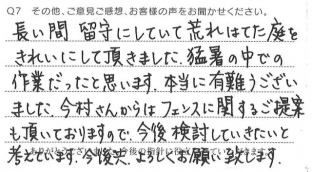 Q7 その他、ご意見ご感想、お客様の声をお聞かせください。
長い間 留守にしていて荒れはてた庭を
きれいにして頂きました。猛暑の中での
作業だったと思います。本当に有難うござい
ました。今村さんからはフェンスに関するご提案
も頂いておりますので、今後検討していきたいと
考えています。今後共、よろしくお願い致します。